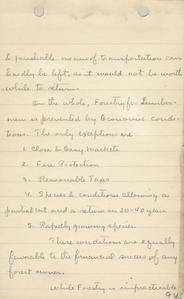 & practicable means of transportation can
hardly be left, as it would not be worth
while to return.
On the whole, Forestry for Lumber-
men is prevented by Economic condi-
tions. The only exceptions are
1. Close & Easy Markets
2. Fire Protection
3. Reasonable Taxes
4. Species & conditions allowing a
partial cut and a return in 20-40 years
5. Rapidly growing species.
These conditions are equally
favorable to the financial success of any
forest owner.
While Forestry is impracticable